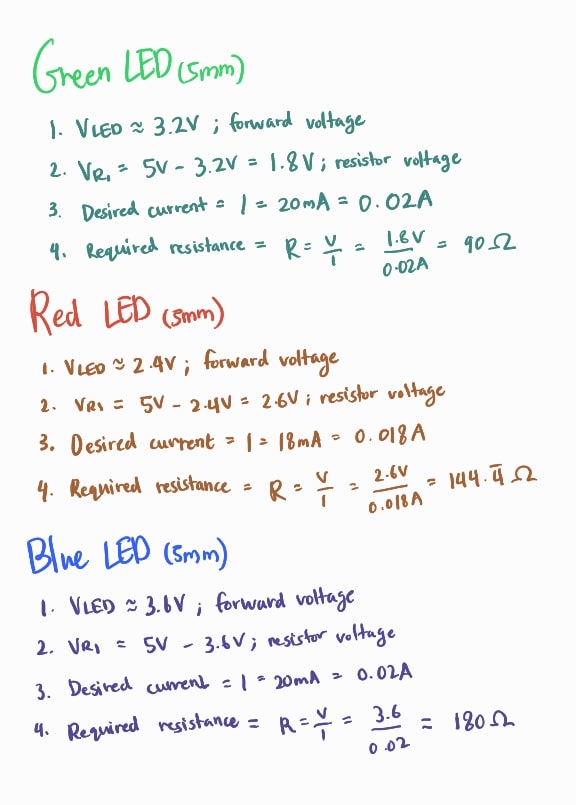 Green LED (5mm)
1. VLED ≈ 3.2V ; forward voltage
2. VR1 = 5V - 3.2V = 1.8V ; resistor voltage
3. Desired current = I = 20mA = 0.02A
4. Required resistance = R = V/I = 1.8V/0.02A = 90Ω
Red LED (5mm)
1. VLED ≈ 2.4V ; forward voltage
2. VR1 = 5V - 2.4V = 2.6V ; resistor voltage
3. Desired current = I = 18mA = 0.018A
4. Required resistance = R = V/I = 2.6V/0.018A = 144.4̄Ω
Blue LED (5mm)
1. VLED ≈ 3.6V ; forward voltage
2. VR1 = 5V - 3.6V ; resistor voltage
3. Desired current = I = 20mA = 0.02A
4. Required resistance = R = V/I = 3.6/0.02 = 180Ω